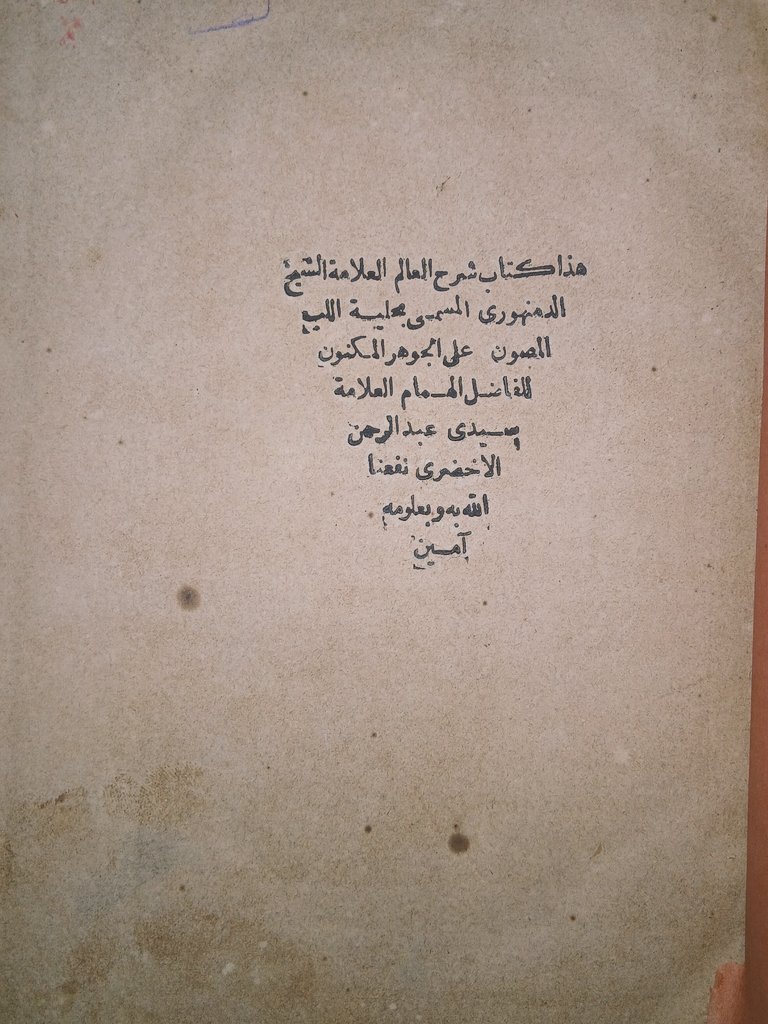 هذا كتاب شرح العالم العلامة الشيخ
الدمنهوري المسمى بحلية اللب
المصون على الجوهر المكنون
للفاضل الهمام العلامة
سيدى عبد الرحمن
الأخضرى نفعنا
الله به وبعلومه
آمين